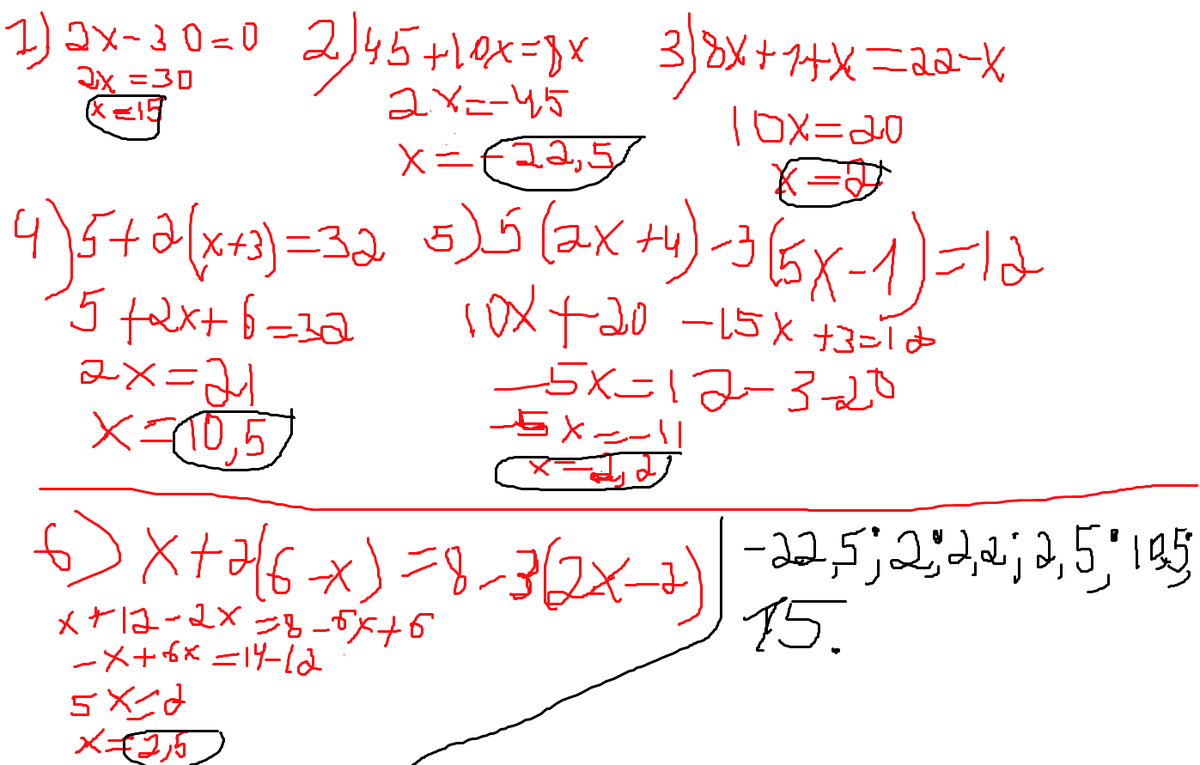 1) 2x-30=0
2x=30
x=15
2) 45+10x=8x
2x=-45
x=-22,5
3) 8x+1+x=22-x
10x=20
x=2
4) 5+2(x+3)=32
5+2x+6=32
2x=21
x=10,5
5) 5(2x+4)-3(5x-1)=12
10x+20-15x+3=12
-5x=12-3-20
-5x=-11
x=2,2
6) x+2(6-x)=8-3(2x-2)
x+12-2x=8-6x+6
-x+6x=14-12
5x=2
x=2,5
-22,5; 2; 2,2; 2,5; 10,5;
15.